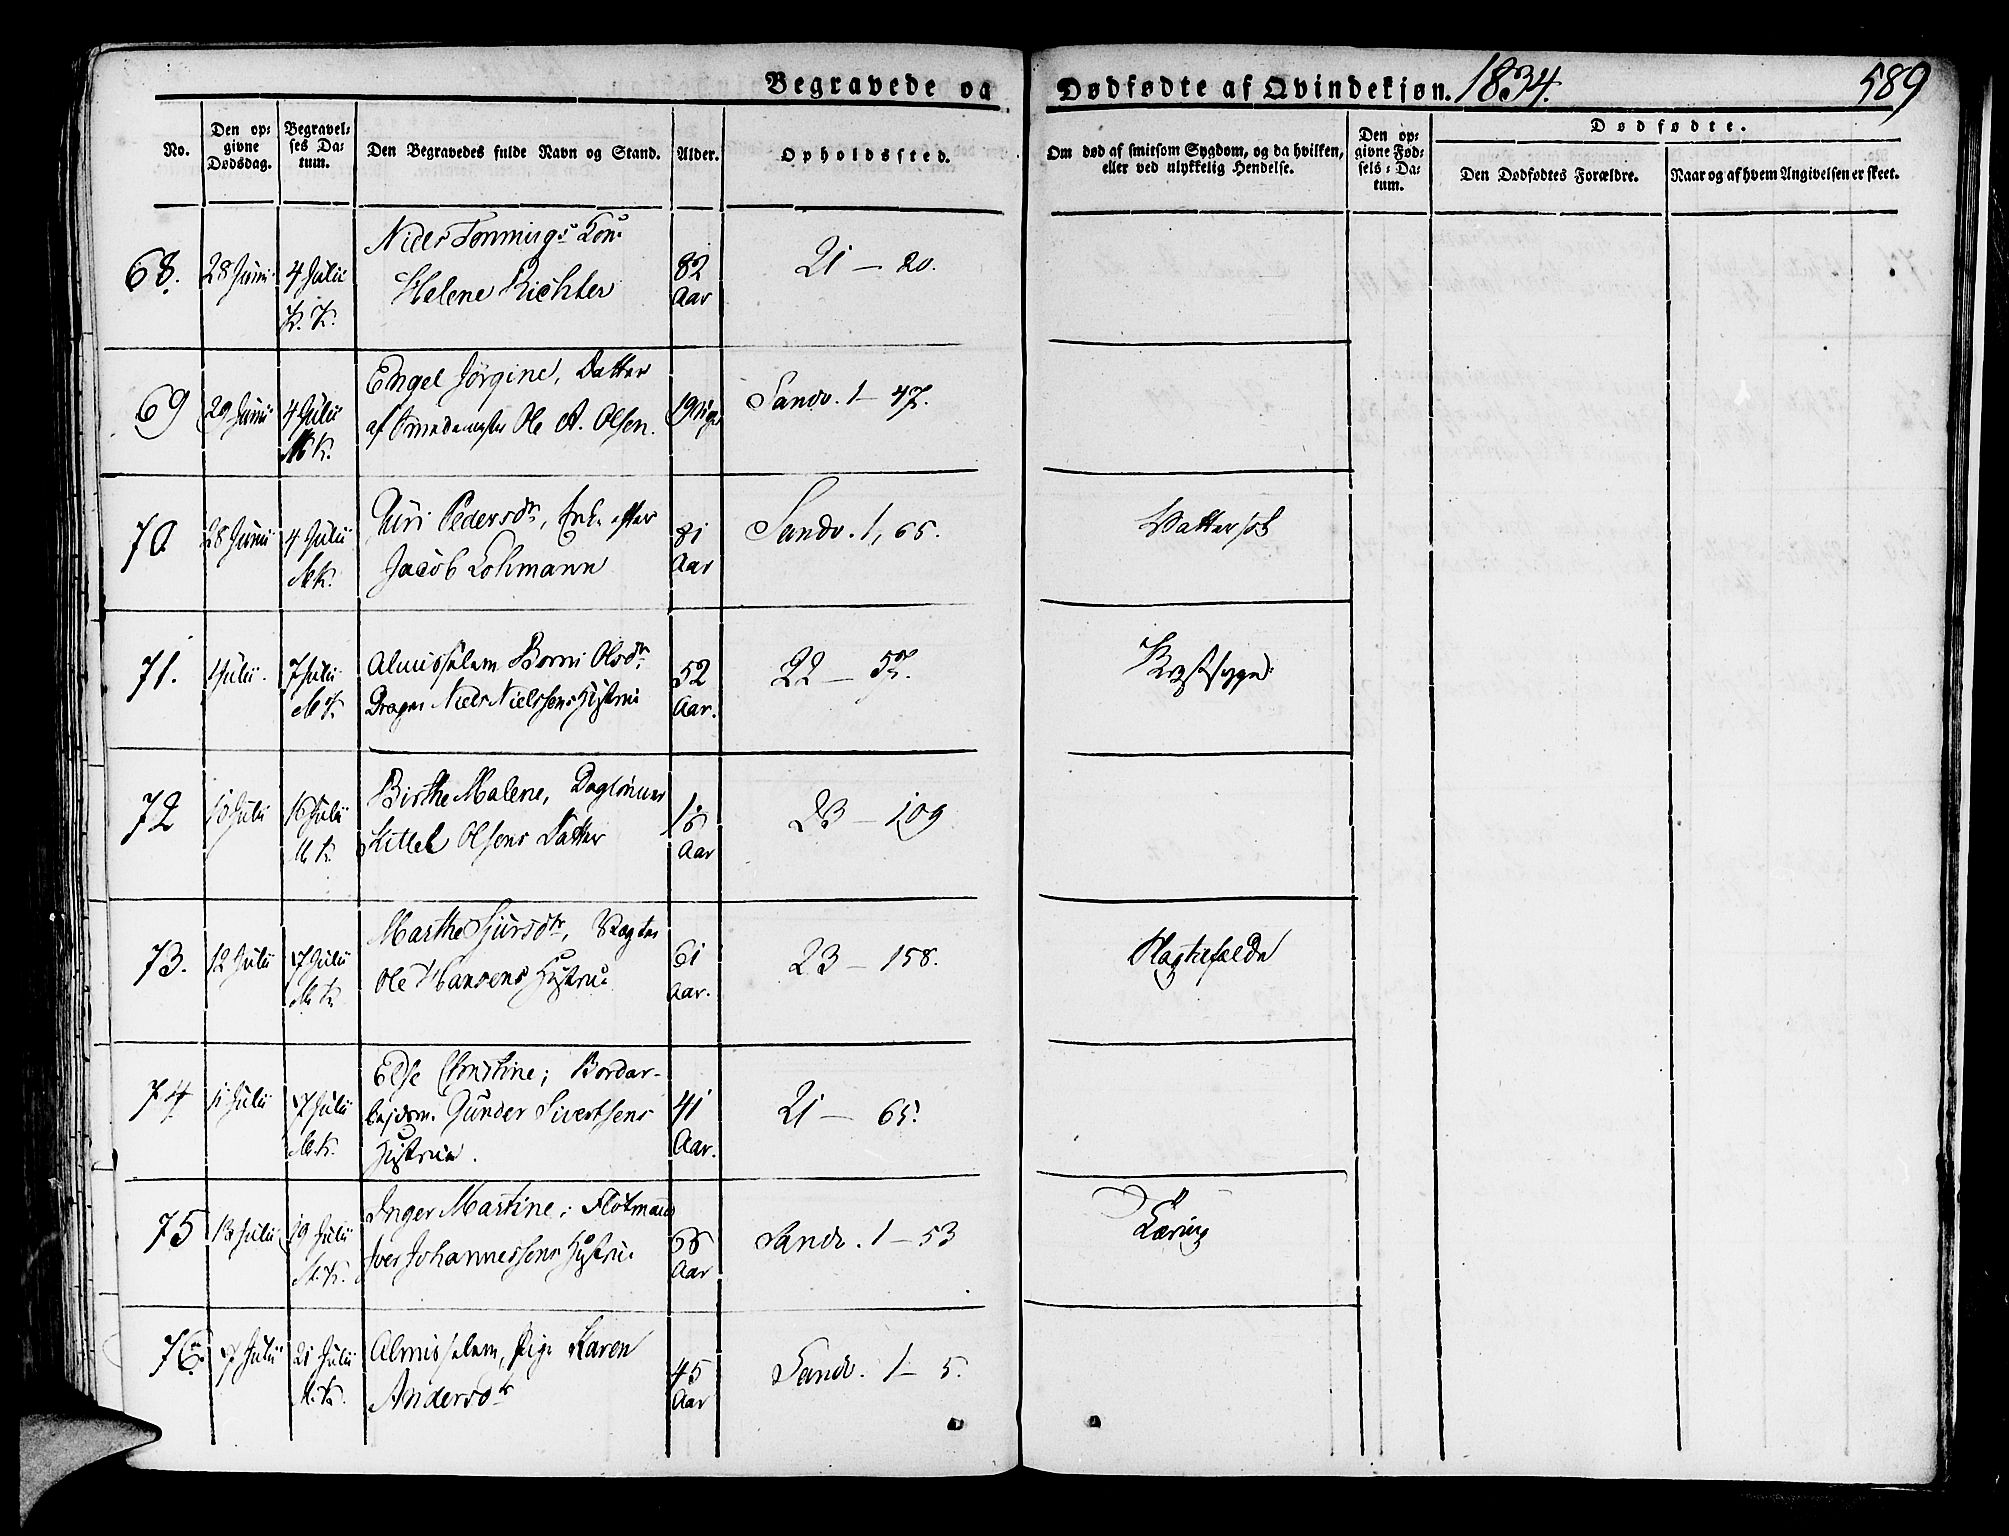 Begravede og Dødfødte af Qvindekjøn. 1834. 589
No. Den opgivne Dødsdag. Begravelses Datum. Den Begravedes fulde Navn og Stand. Alder. Opholdssted. Om død af smitsom Sygdom, og da hvilken, eller ved ulykkelig Hendelse. Den opgivne Fødsels-Datum. Dødfødte.
Den Dødfødtes Forældre. Naar og af hvem Angivelsen er skeet.
68. 28 Junii 4 Julii Kone 82 21 — 20.
Helene Richter Aar
K. K.
69 29 Junii 4 Julii Engel Jörgine, Datter 19 Sandv. 1 — 47.
M K. af Ole A. Olsen.
70. 28 Junii 4 Julii Guri Pedersdr, Enke efter 81 Sandv. 1, 65. Vattersot
M K. Jacob Lohmann Aar
71. 1 Julii. 7 Julii Almisselem Borni Olsdr 52 22 — 57. Brystsyge
M K. Drager Niels Nielssens Hustrue Aar.
72 10 Julii 16 Julii Birthe Malene, Daglönner 16 23 — 109
M K. Kittel Olsens Datter Aar
73. 12 Julii 17 Julii Marthe Sjursdr, Vægter 61 23 — 158.
M K. Ole Hansens Hustrue Aar.
74 11 Julii 17 Julii Else Christine; Bordar-
bejdsm. Gunder Sivertsens 41 21 — 65.
M K. Hustrue. Aar.
75 13 Julii 19 Julii Inger Martine; Flötmand 66 Sandv. 1 — 53 Tæring
M. K. Iver Johannessens Hustrue Aar
76. 17 Julii 21 Julii Almisselem, Pige Karen 45 Sandv. 1 — 5.
M. K. Andersdr Aar